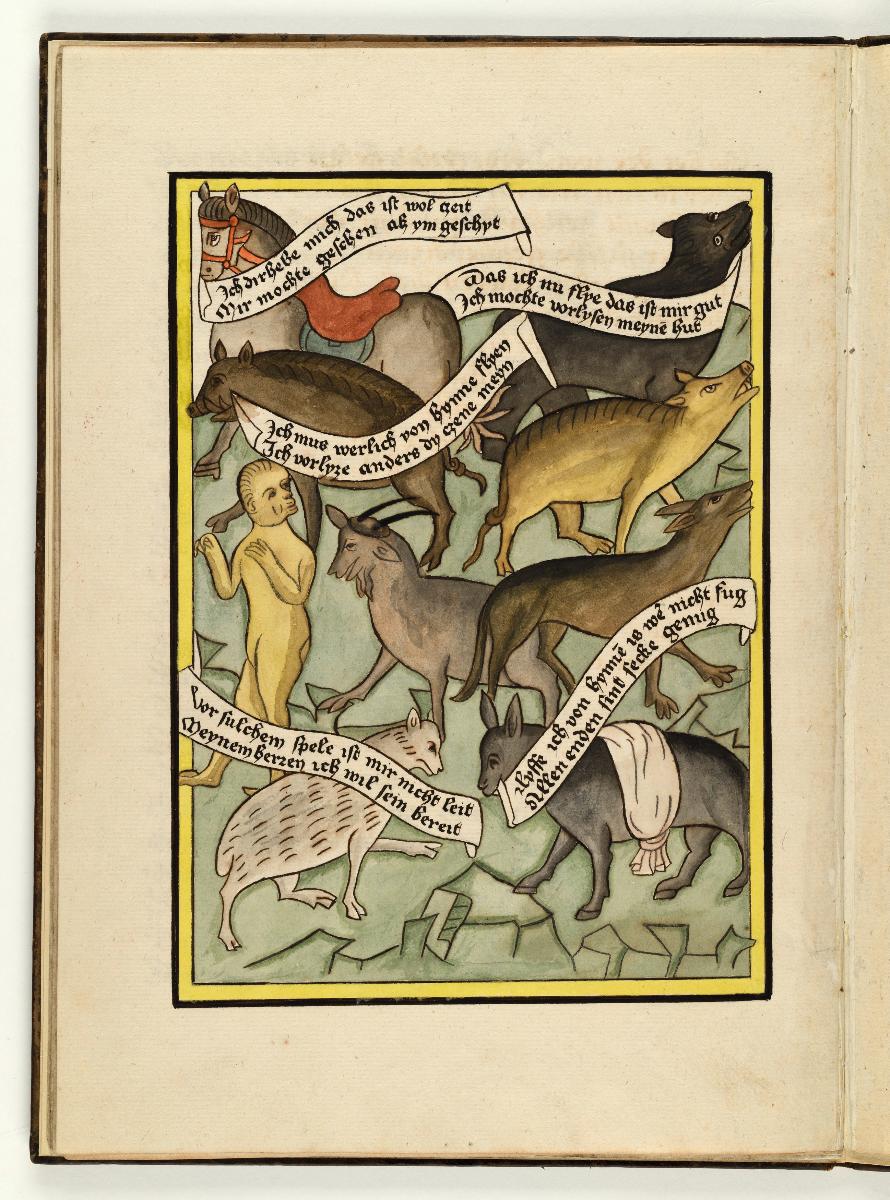 Ich dirhebe mich das ist wol czeit
Mir mochte geschen als ym geschyt
Das ich nu flye das ist mir gut
Ich mochte vorlysen meynē hut
Ich mus werlich von hynne flyen
Ich vorlyze anders dy czene meyn
ich von hynnē is wē nicht fug
Allen enden sint secke genug
Vor sulchem spele ist mir nicht leit
Meynem herzen ich wil sein bereit